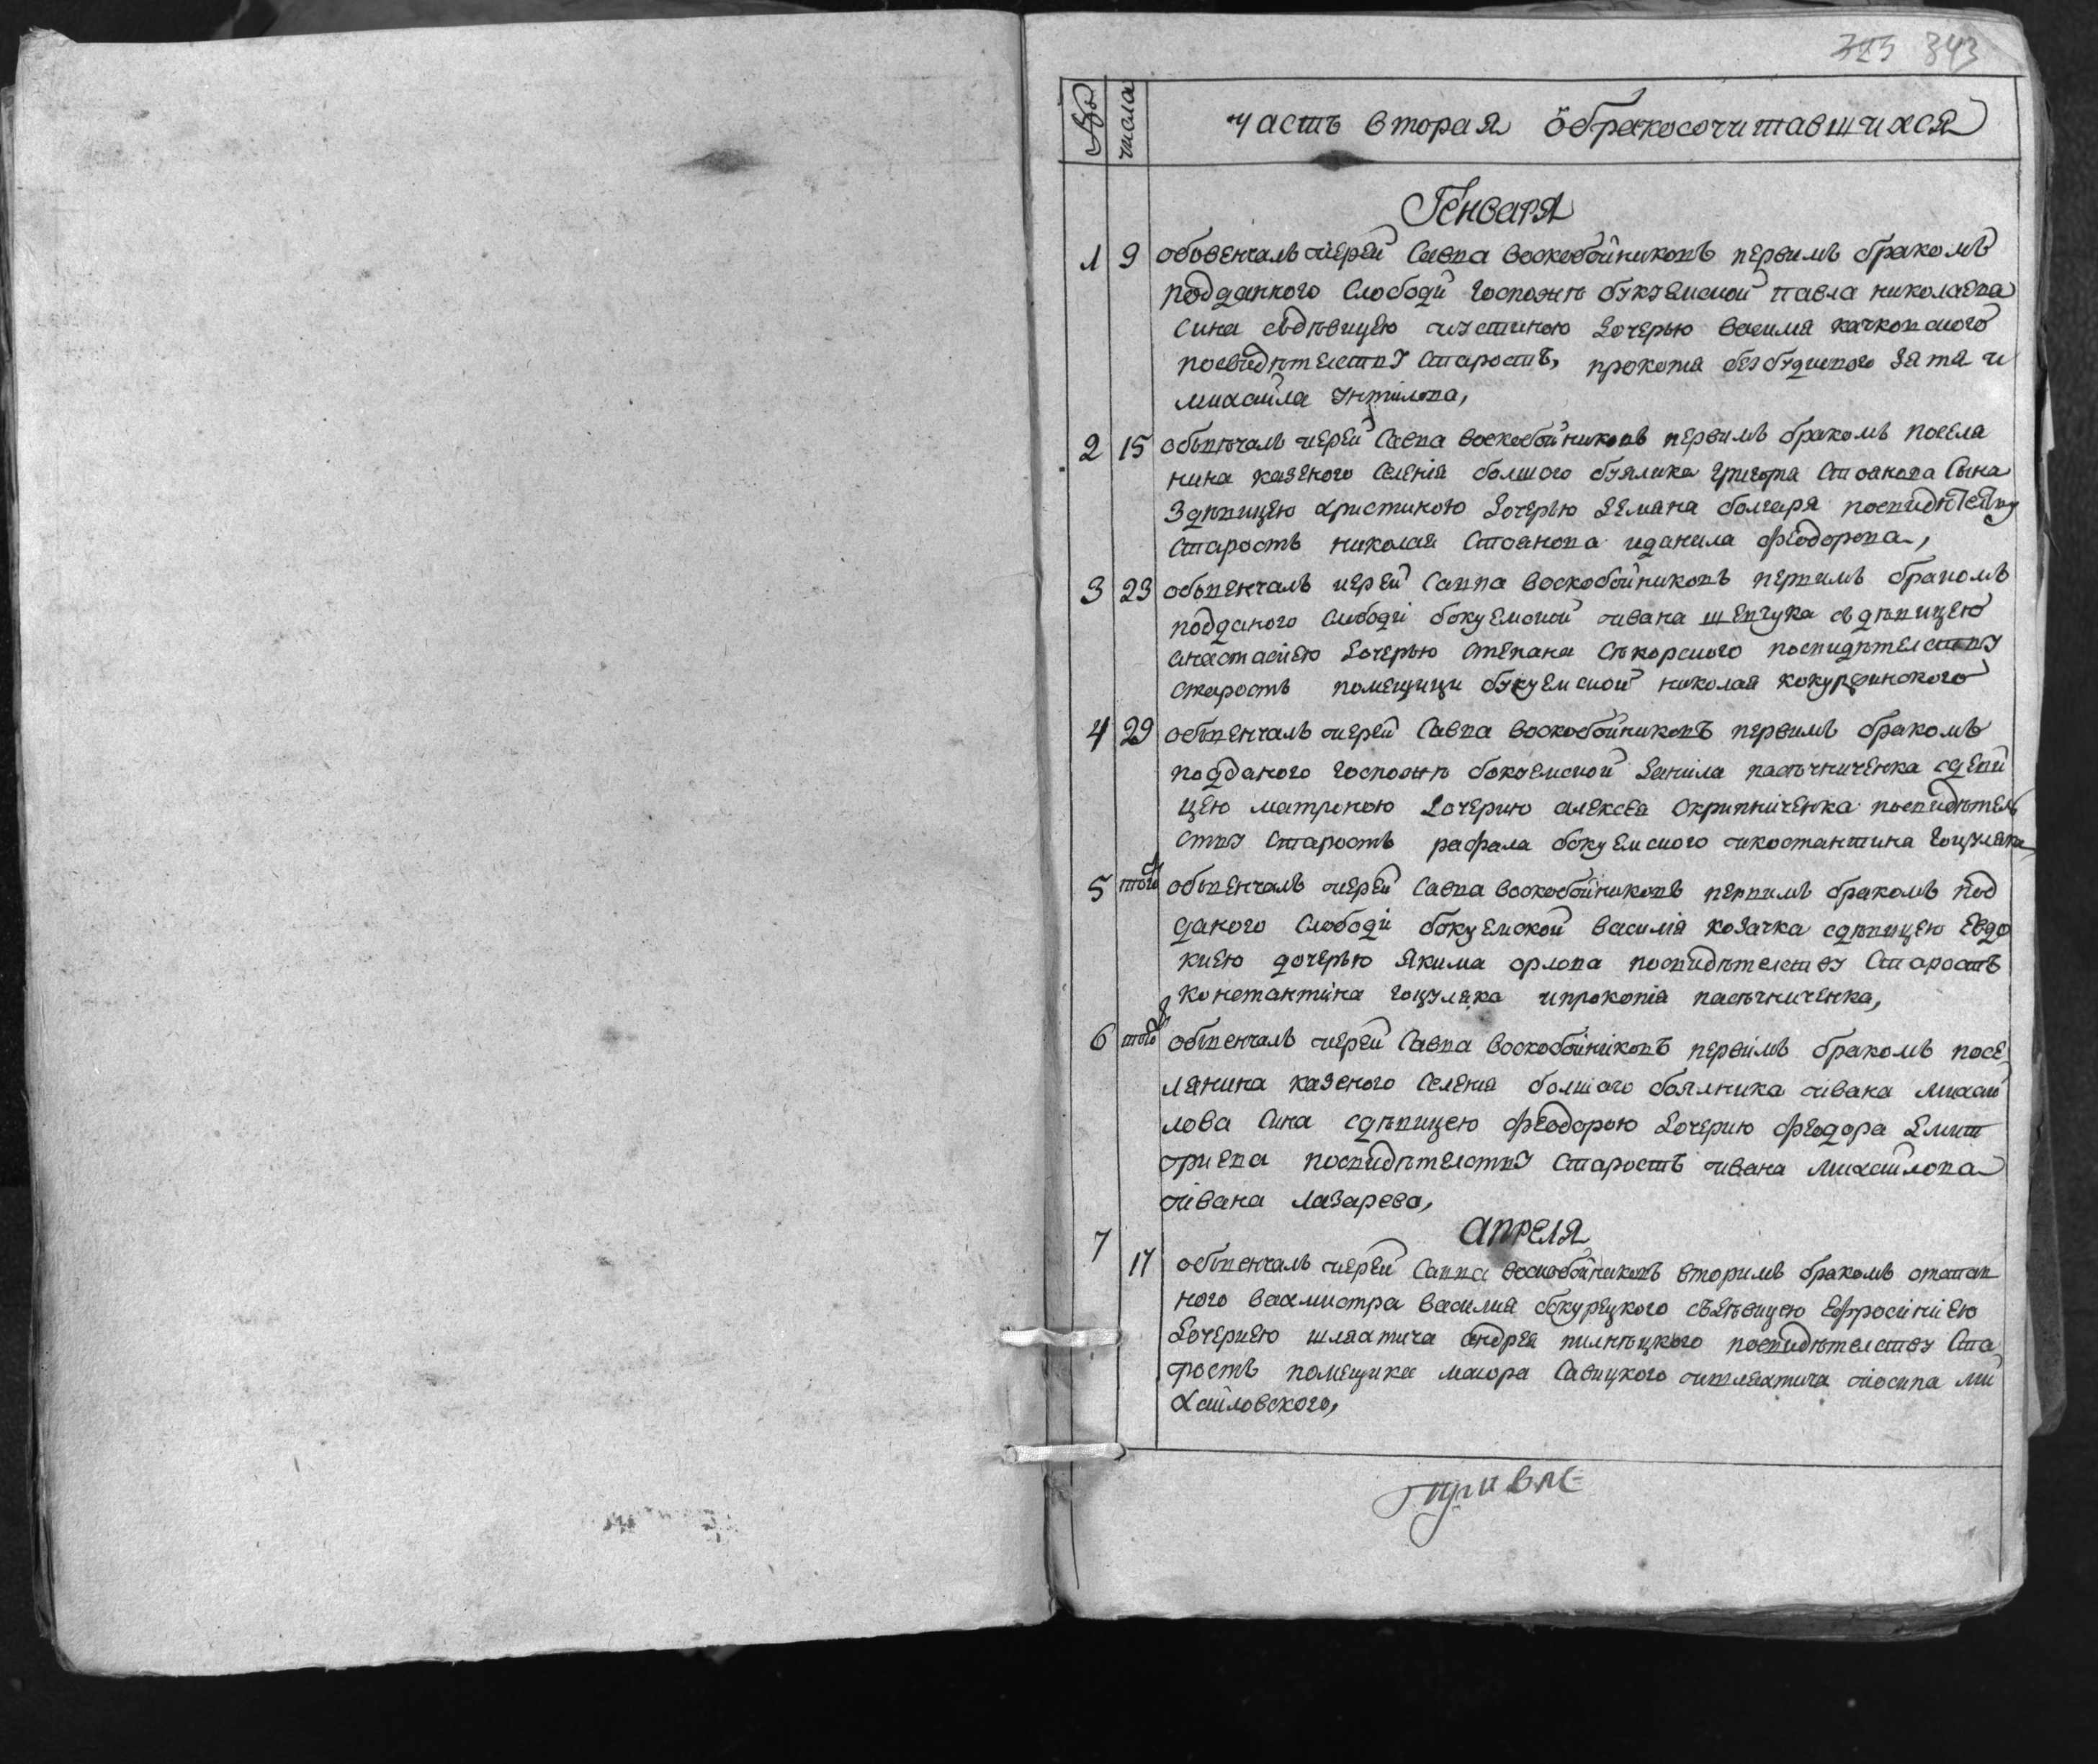 343
№
числа
часть вторая ѡбракосочитавшихся
Генваря
1 9 обовенчалъ иерей Савва Воскобойниковъ первимъ бракомъ
подданного Слободи госпожѣ букуемской Павла Николаева
Сина сьдѣвицею дочерью Василя качковского
посвидѣтелству Старостъ, прокопа зятя и
михайла
2 15 обвѣнчалъ иерей Савва Воскобойниковъ первимъ бракомъ посела
нина казеного Селенія болшого буялика Григоря Стоанова Сына
Здѣвицею христиною дочерью болгаря посвидѣтелству
Старостъ николая Стоанова иданила феодорова,
3 23 обьвенчалъ иерей Савва Воскобойниковъ первимъ бракомъ
подданого Слободі бокуемской ивана шевчука сь дѣвицею
анастасиею дочерью Степана Сѣкорского посвидѣтелству
Старостъ помещици букуемской николая
4 29 обвенчалъ иерей Савва Воскобойниковъ первимъ бракомъ
подданого госпожѣ бокуемской даніла пасѣчниченка сдеви
цею матроною дочерию алексея Скрипніченка посвидѣтель
ству Старостъ рафала бокуемского икостантина гоцуляка
5 того обвенчалъ иерей Савва Воскобойниковъ первимъ бракомъ под
даного Слободі бокуемской Василія козачка сдѣвицею Евдо
киею дочерью Якима орлова посвидѣтелству Старостъ
Константіна гоцуляка ипрокопія пасѣчниченка,
6 того обвенчалъ иерей Савва Воскобойніковъ первімъ бракомъ посе
лянина казеного Селенія болшаго боялника ивана михай
лова Сина сдѣвицею феодорою дочерию феодора дмит
риева посвидѣтелству Старостъ ивана Михайлова
ивана лазарева,
Апреля
7 17 обвенчалъ иерей Савва Воскобойниковъ вторимъ бракомъ отстав
ного вахмистра Василия бокурецкого сьдѣвицею Ефросініею
дочериею шляхтича андрея посвидѣтелству Ста
ростъ помещика маиора Савицкого ишляхтича иосипа ми
хайловского,